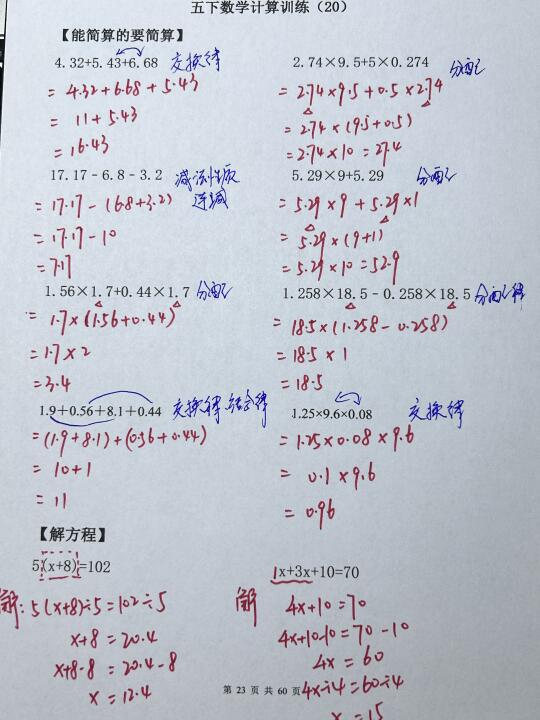 五下数学计算训练（20）
【能简算的要简算】
4.32+5.43+6.68 交换律
= 4.32 + 6.68 + 5.43
= 11 + 5.43
= 16.43
2.74×9.5+5×0.274 分配
= 2.74 × 9.5 + 0.5 × 2.74
= 2.74 × (9.5+0.5)
= 2.74 × 10 = 27.4
17.17－6.8－3.2 减法性质
连减
= 17.17 - (6.8+3.2)
= 17.17 - 10
= 7.17
5.29×9+5.29 分配
= 5.29 × 9 + 5.29 × 1
= 5.29 × (9+1)
= 5.29 × 10 = 52.9
1.56×1.7+0.44×1.7 分配
= 1.7 × (1.56 + 0.44)
= 1.7 × 2
= 3.4
1.258×18.5－0.258×18.5 分配律
= 18.5 × (1.258 - 0.258)
= 18.5 × 1
= 18.5
1.9+0.56+8.1+0.44 交换律 结合律
= (1.9 + 8.1) + (0.56 + 0.44)
= 10 + 1
= 11
1.25×9.6×0.08 交换律
= 1.25 × 0.08 × 9.6
= 0.1 × 9.6
= 0.96
【解方程】
5(x+8)=102
解: 5(x+8)÷5 = 102÷5
x+8 = 20.4
x+8-8 = 20.4-8
x = 12.4
1x+3x+10=70
解 4x+10 = 70
4x+10-10 = 70-10
4x = 60
4x÷4 = 60÷4
x = 15
第 23 页 共 60 页